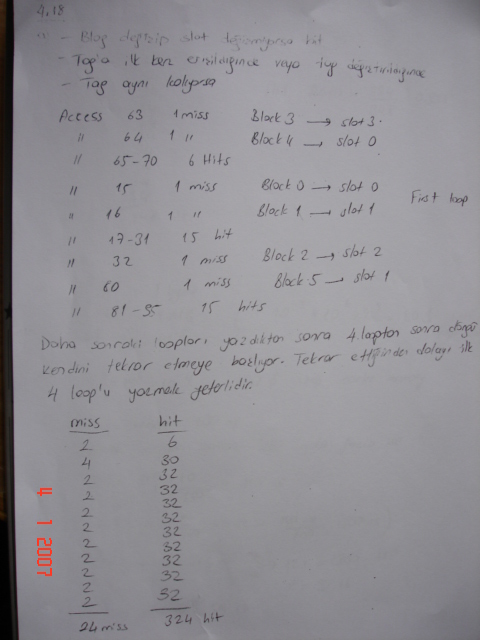 4.18
- Blog değişip slot değişmiyorsa hit
- Tag'a ilk kez erişildiğinde veya tag değiştirildiğinde
- Tag aynı kalıyorsa
Access 63 1 miss Block 3 → slot 3.
" 64 1 " Block 4 → slot 0
" 65-70 6 Hits
" 15 1 miss Block 0 → slot 0
" 16 1 " Block 1 → slot 1 First loop
" 17-31 15 hit
" 32 1 miss Block 2 → slot 2
" 80 1 miss Block 5 → slot 1
" 81-95 15 hits
Daha sonraki loopları yazdıktan sonra 4 looptan sonra döngü
kendini tekrar etmeye başlıyor. Tekrar ettiğinden dolayı ilk
4 loop'u yazmak yeterlidir.
miss hit
2 6
4 30
2 32
2 32
2 32
2 32
2 32
2 32
2 32
2 32
2 32
24 miss 324 hit
4 1 2007